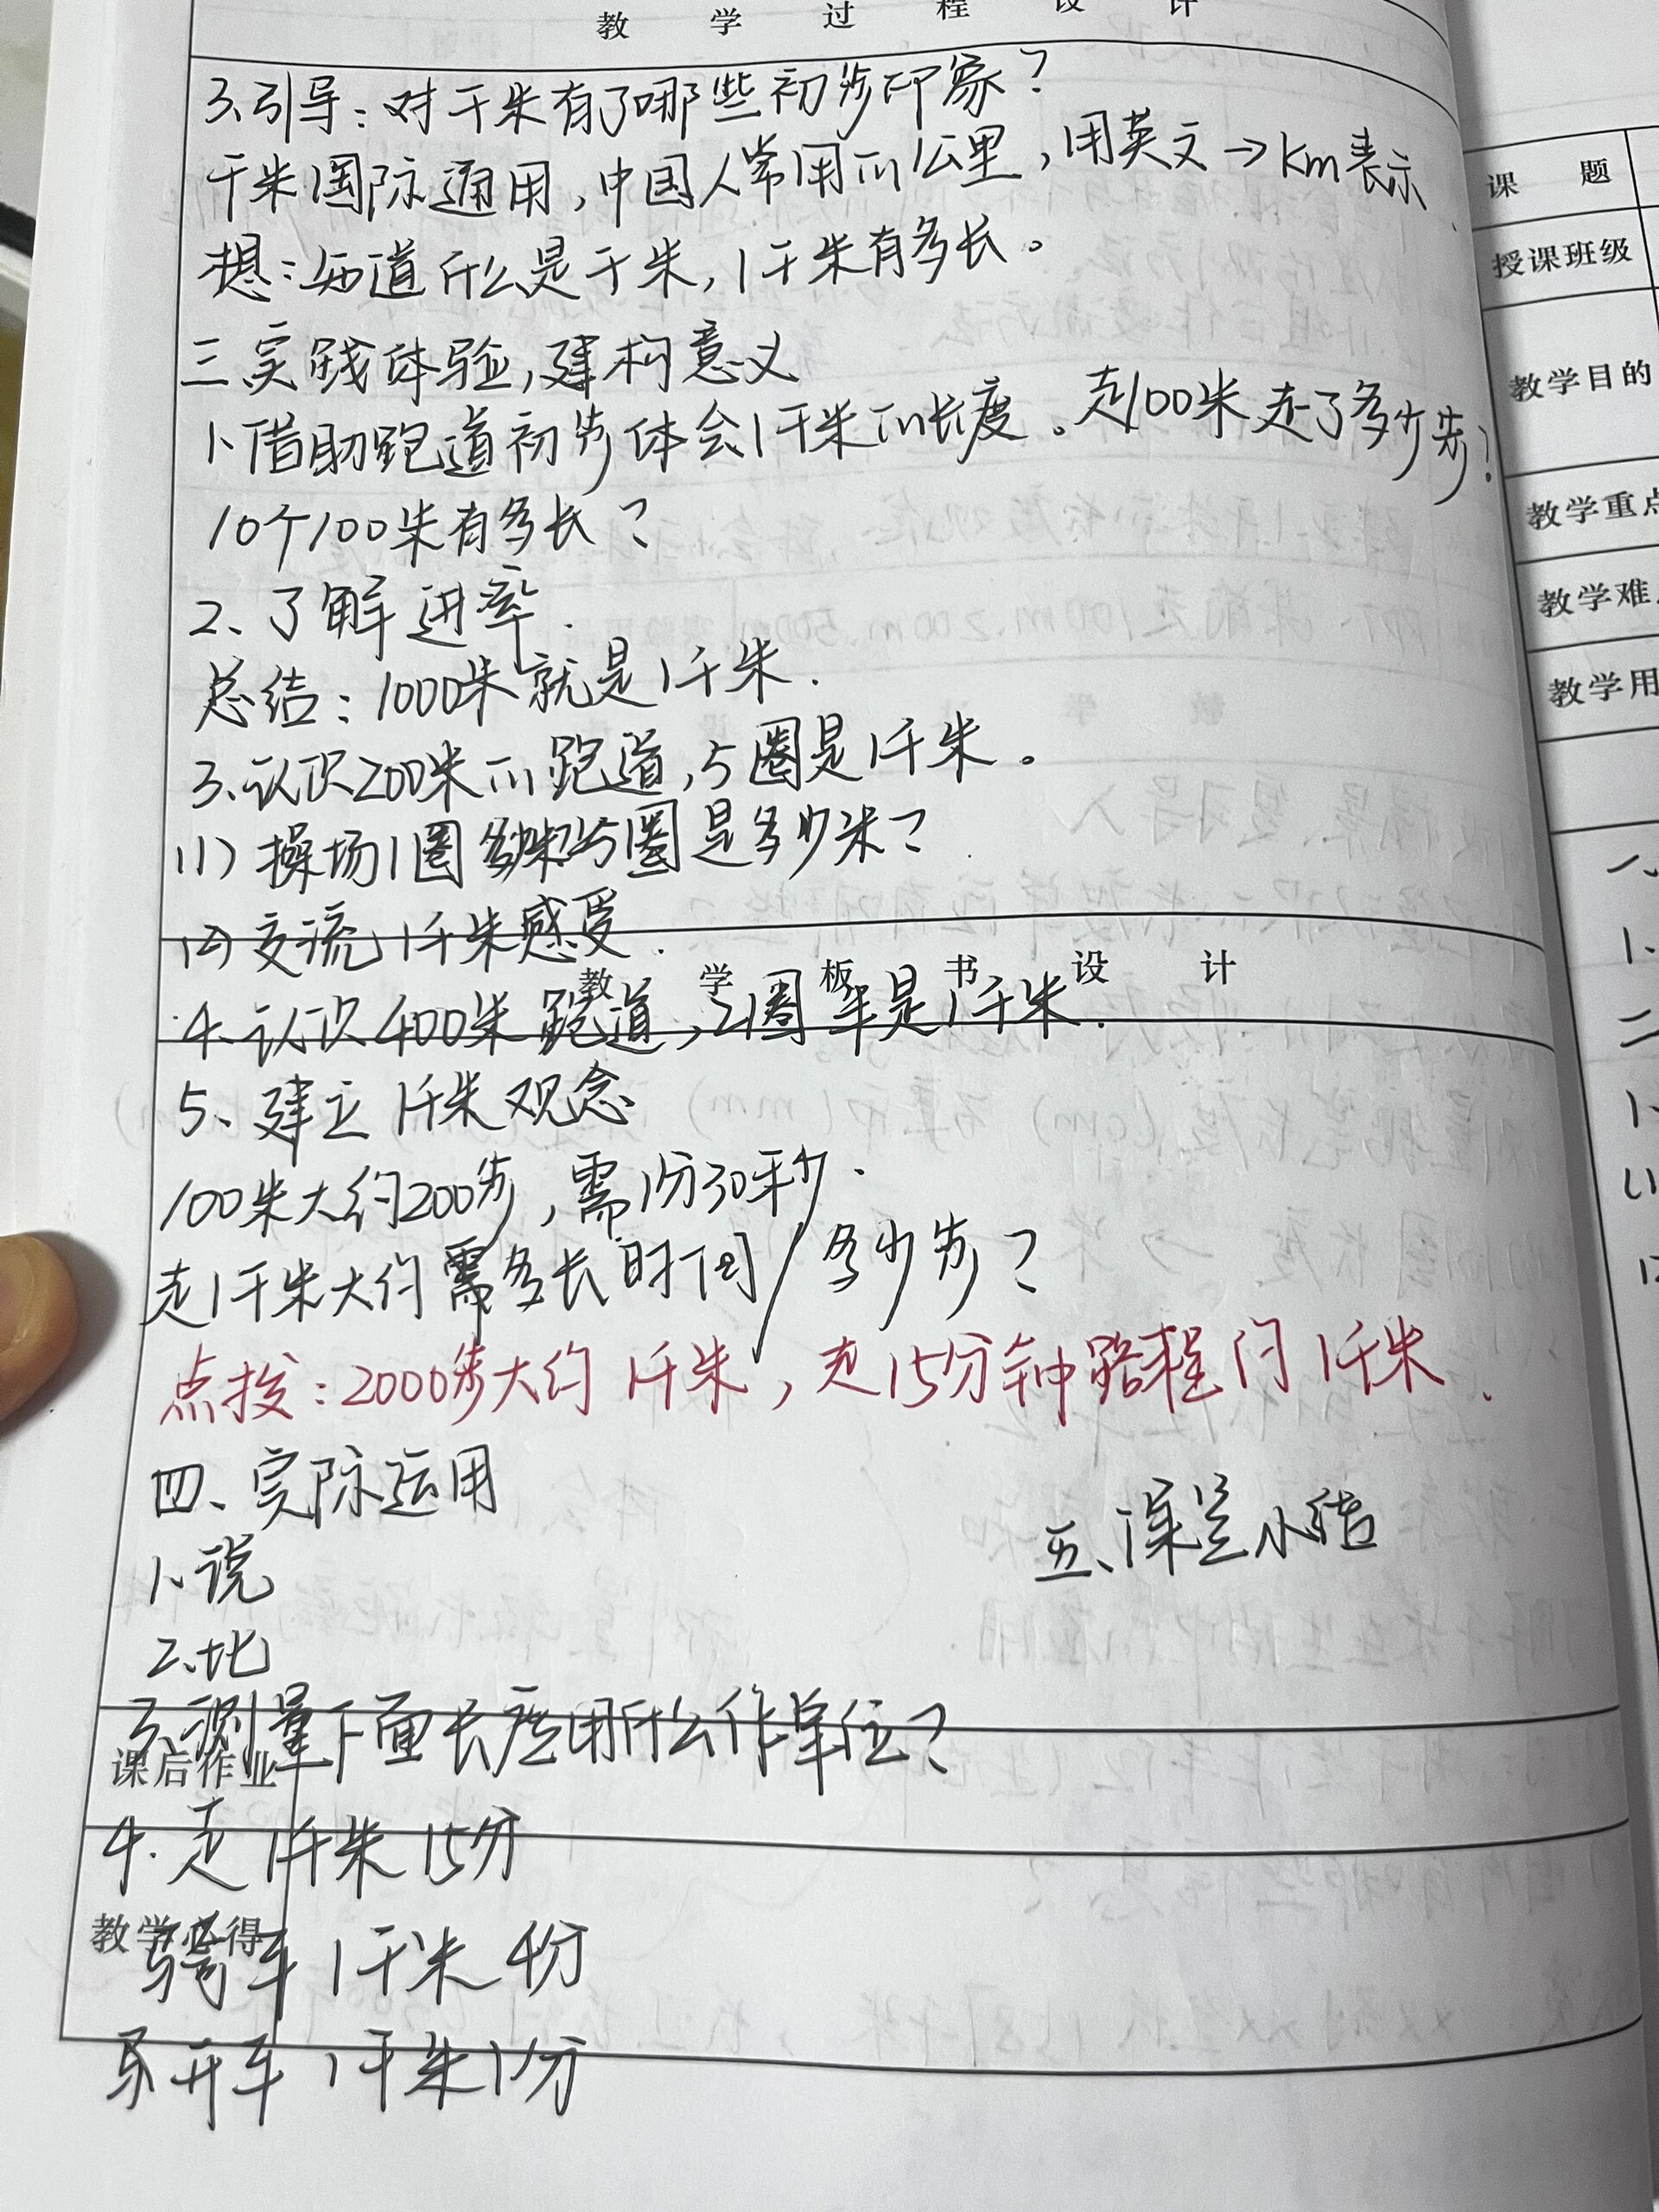 教 学 过 程 设 计
3、引导：对千米有了哪些初步印象？
千米国际通用，中国人常用的公里，用英文→km表示
想：知道什么是千米，1千米有多长。
三实践体验，建构意义
1、借助跑道初步体会1千米的长度。走100米走了多少步？
10个100米有多长？
2、了解进率.
总结：1000米就是1千米.
3、认识200米的跑道，5圈是1千米。
(1) 操场1圈 5圈是多少米？
(2) 交流1千米感受.
教 学 板 书 设 计
4、认识400米跑道，2圈半是1千米.
5、建立1千米观念
100米大约200步，需1分30秒.
走1千米大约需多长时间/多少步？
点拨：2000步大约1千米，走15分钟路程约1千米.
四、实际运用
五、课堂小结
1、说
2、比
3、测量下面长度用什么作单位？
课后作业
4. 走1千米15分
教学心得
骑车1千米4分
开车1千米1分
课 题
授课班级
教学目的
教学重点
教学难
教学用
一、
1、
二
1、
(1